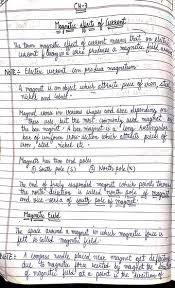 CH-3
Magnetic effect of Current
The term magnetic effect of current means that an electric
current flowing in a wire produces a magnetic field around
Note:- Electric current can produce magnetism
A magnet is an object which attracts piece of iron, steel
nickel and cobalt.
Magnet comes in various shapes and sizes depending on
their uses but the most commonly used magnet
the bar magnet. A bar magnet is a long rectangular
bar of uniform cross-section which attracts pieces of
iron, steel, nickel etc.
Magnets has two end poles
① South pole (S) ② North pole (N)
The end of freely suspended magnet which points towards
the north direction is called north pole of magnet
and vice-versa of south pole of magnet
Magnetic Field
The space around a magnet in which magnetic force is
felt is called magnetic field.
NOTE:- A compass needle placed near magnet get deflected
due to magnetic force exerted by magnet the
of magnetic field at a point is the direction of